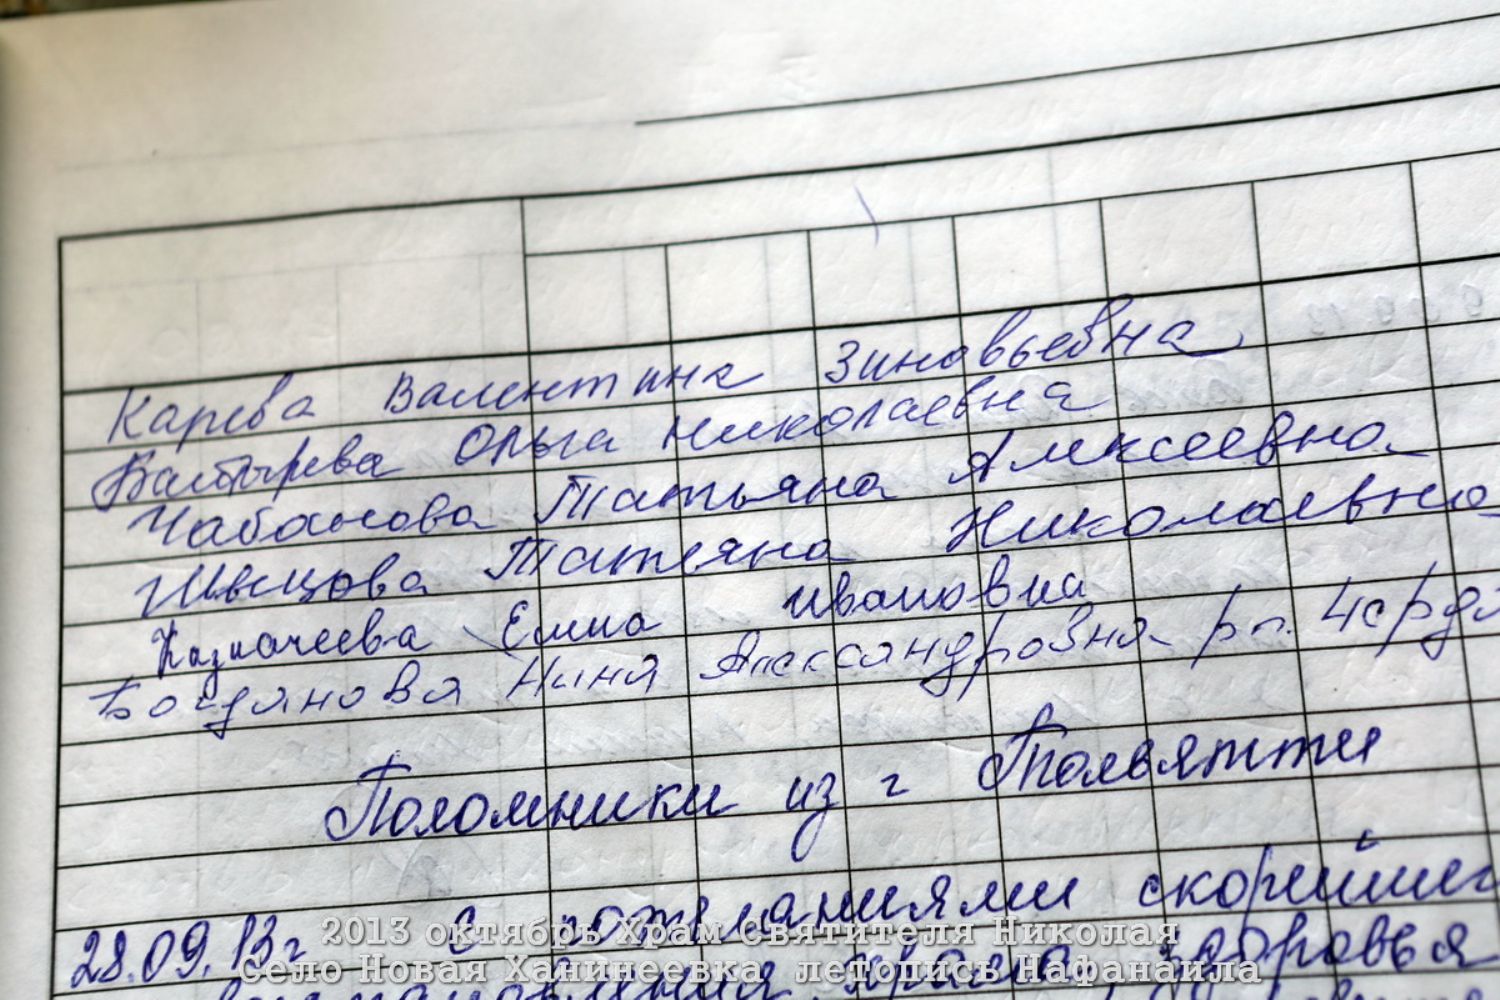 Карева Валентина Зиновьевна
Бастырева Ольга Николаевна
Чабанова Татьяна Алексеевна
Швецова Татьяна Николаевна
Казначеева Елена Ивановна
Богданова Нина Александровна рп.
Поломники из г Тольятти
28.09.13г С пожеланиями скорейшег
храма, здоровья
2013 октябрь Храм Святителя Николая
Село Новая Ханинеевка, летопись Нафанаила